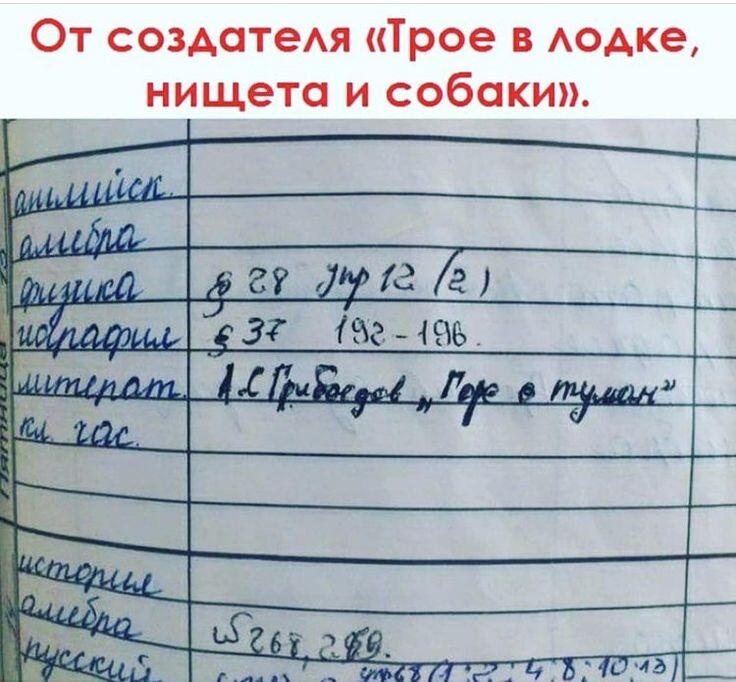 От создателя «Трое в лодке,
нищета и собаки».
Пятница
английск.
алгебра
физика § 28 упр 12 (2)
география § 37 192-196.
литерат. А.С Грибоедов „Горе о туман"
кл. час.
история
алгебра №268, 269.
русский упр68 (1; 2; 4; 8; 10; 13)